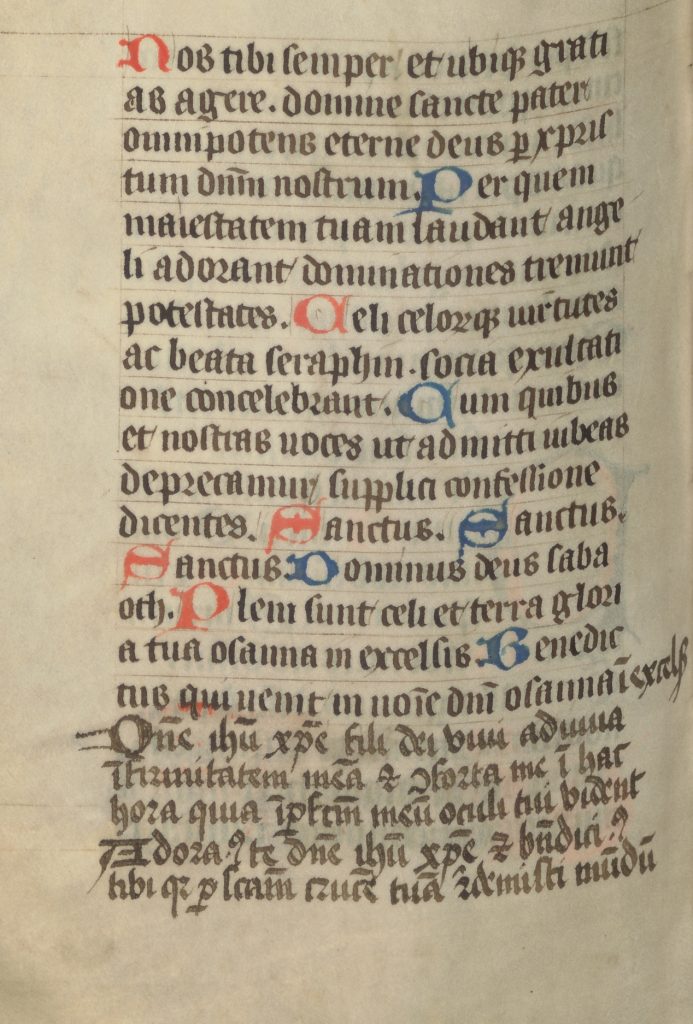 Nos tibi semper et ubiqꝫ grati
as agere. domine sancte pater
omnipotens eterne deus ꝑ xpris
tum dnm̄ nostrum. Per quem
maiestatem tuam laudant ange
li adorant dominationes tremunt
potestates. Celi celorqꝫ uirtutes
ac beata seraphin. socia exultati
one concelebrant. Cum quibus
et nostras uoces ut admitti iubeas
deprecamur supplici confessione
dicentes. Sanctus. Sanctus.
Sanctus. Dominus deus saba
oth. Pleni sunt celi et terra glori
a tua osanna in excelsis. Benedic
tus qui uenit in noīe dnī osanna ī excels
Dn̄e ihū xp̄e fili dei viui adiuua
īfirmitatem meā ⁊ ↄforta me ī hac
hora quia īꝑfcm̄ meū oculi tui vident
Adoraꝰ te dn̄e ihū xp̄e ⁊ bn̄diciꝰ
tibi qꝛ ꝑ scam̄ crucē tuā redemisti mūdū